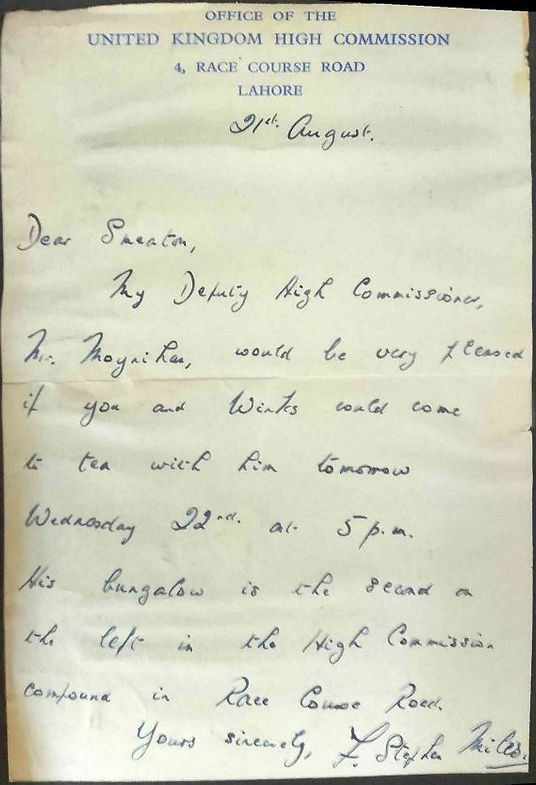 OFFICE OF THE
UNITED KINGDOM HIGH COMMISSION
4, RACE COURSE ROAD
LAHORE
21st August.
Dear Smeaton,
My Deputy High Commissioner,
Mr. Moynihan, would be very pleased
if you and Winks could come
to tea with him tomorrow
Wednesday 22nd. at 5 p.m.
His bungalow is the second on
the left in the High Commission
compound in Race Course Road.
Yours sincerely, F. Stephen Miles.